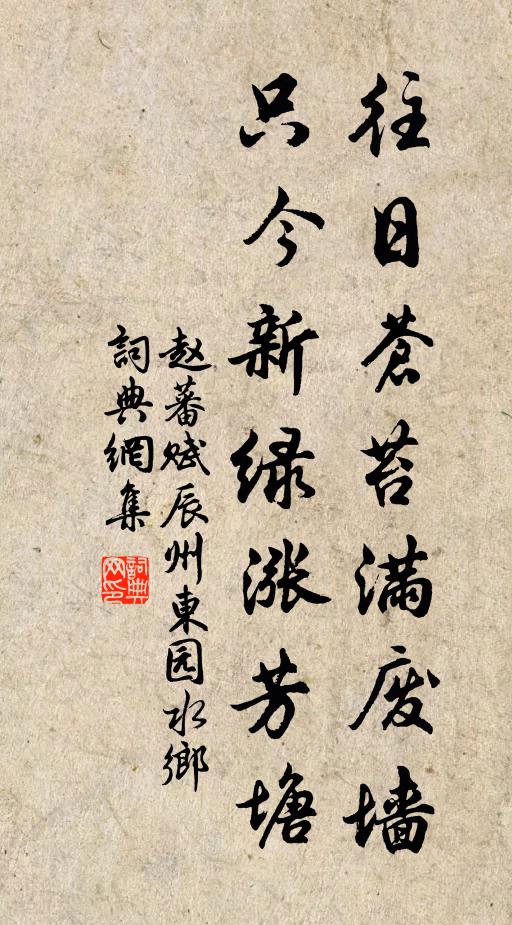 往日蒼苔满废墙
只今新绿涨芳塘
赵蕃赋辰州東园水鄉
詞典網集
詞典网印